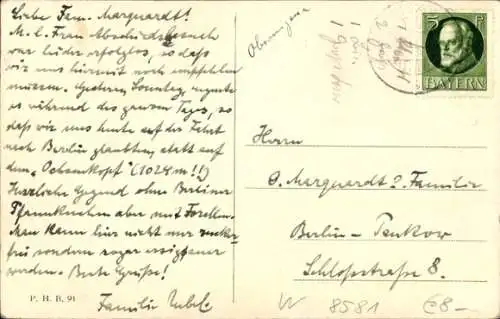 Liebe Fam. Marquardt!
M. l. Frau Abschiedsbesuch
war leider erfolglos, so daß
wir uns hiermit noch empfehlen
müssen. Gestern, Sonntag, regnete
es während des ganzen Tages, so
daß wir uns heute auf der Fahrt
nach Berlin glaubten, statt auf
dem „Ochsenkopf“ (1024 m!!)
Herzliche Gegend ohne Berliner
Pfannkuchen aber mit Forellen.
Man kann hier nicht nur
frei sondern sogar
werden. Beste Grüße!
Familie
P. H. B. 91
5 P
BAYERN
Herrn
O. Marquardt & Familie
Berlin-Pankow
Schloßstraße 8.
W 8581 €8-